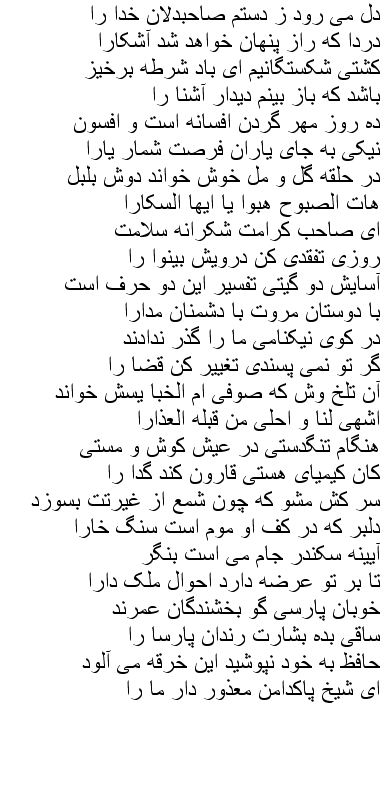 دل می رود ز دستم صاحبدلان خدا را
دردا که راز پنهان خواهد شد آشکارا
کشتی شکستگانیم ای باد شرطه برخیز
باشد که باز بینم دیدار آشنا را
ده روز مهر گردن افسانه است و افسون
نیکی به جای یاران فرصت شمار یارا
در حلقه گل و مل خوش خواند دوش بلبل
هات الصبوح هبوا یا ایها السکارا
ای صاحب کرامت شکرانه سلامت
روزی تفقدی کن درویش بینوا را
آسایش دو گیتی تفسیر این دو حرف است
با دوستان مروت با دشمنان مدارا
در کوی نیکنامی ما را گذر ندادند
گر تو نمی پسندی تغییر کن قضا را
آن تلخ وش که صوفی ام الخبا یسش خواند
اشهی لنا و احلی من قبله العذارا
هنگام تنگدستی در عیش کوش و مستی
کان کیمیای هستی قارون کند گدا را
سر کش مشو که چون شمع از غیرتت بسوزد
دلبر که در کف او موم است سنگ خارا
آیینه سکندر جام می است بنگر
تا بر تو عرضه دارد احوال ملک دارا
خوبان پارسی گو بخشندگان عمرند
ساقی بده بشارت رندان پارسا را
حافظ به خود نپوشید این خرقه می آلود
ای شیخ پاکدامن معذور دار ما را